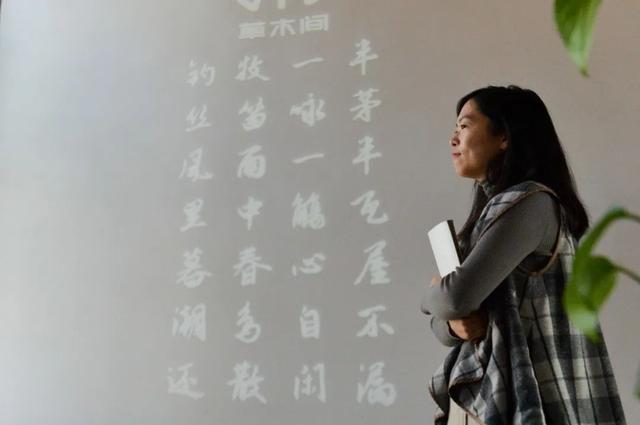 草木间
半茅半瓦屋不漏
一咏一觞心自闲
牧笛雨中春散
钓丝风里暮潮还